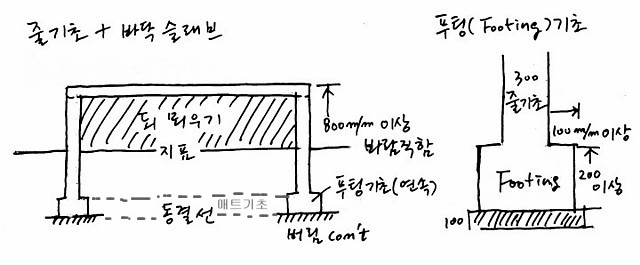 줄기초 + 바닥 슬래브
푸팅(Footing)기초
300
줄기초
되 메우기
800m/m 이상
바람직함
100m/m 이상
지표
Footing
200
이상
푸팅기초(연속)
매트기초
동결선
버림 con't
100